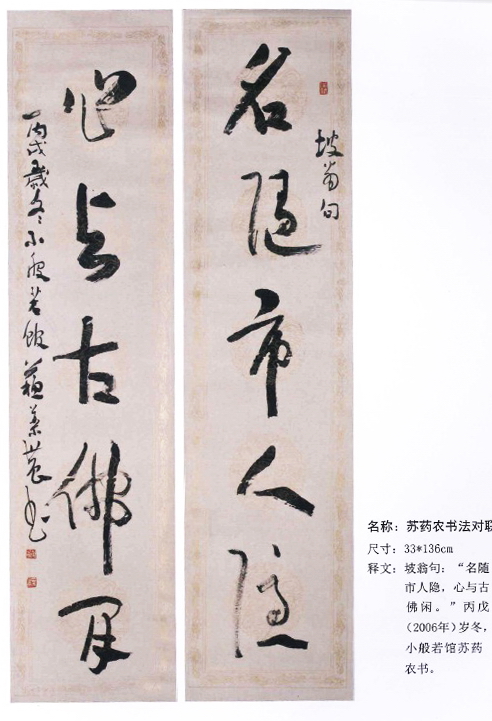 名隨市人隱
坡翁句
心与古佛閒
丙戌歲冬小般若館蘇藥農書
名称：苏药农书法对联
尺寸：33*136cm
释文：坡翁句：“名随
市人隐，心与古
佛闲。”丙戌
（2006年）岁冬，
小般若馆苏药
农书。